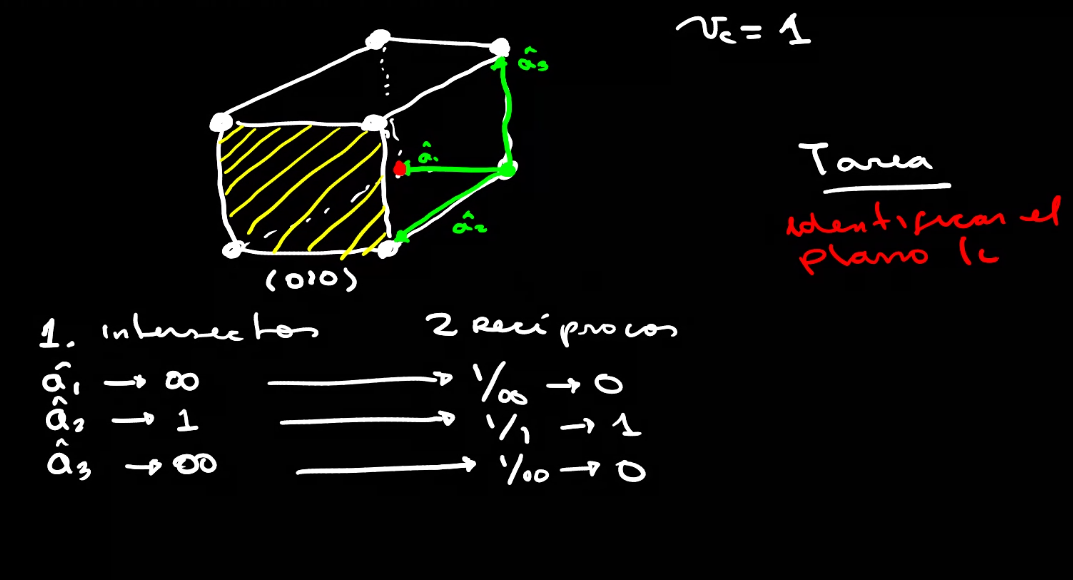 𝒱c = 1
â₃
â₁
â₂
(010)
Tarea
identificar el
plano (c
1. intersectos
2 Recíprocos
â₁ → ∞ → 1/∞ → 0
â₂ → 1 → 1/1 → 1
â₃ → ∞ → 1/∞ → 0